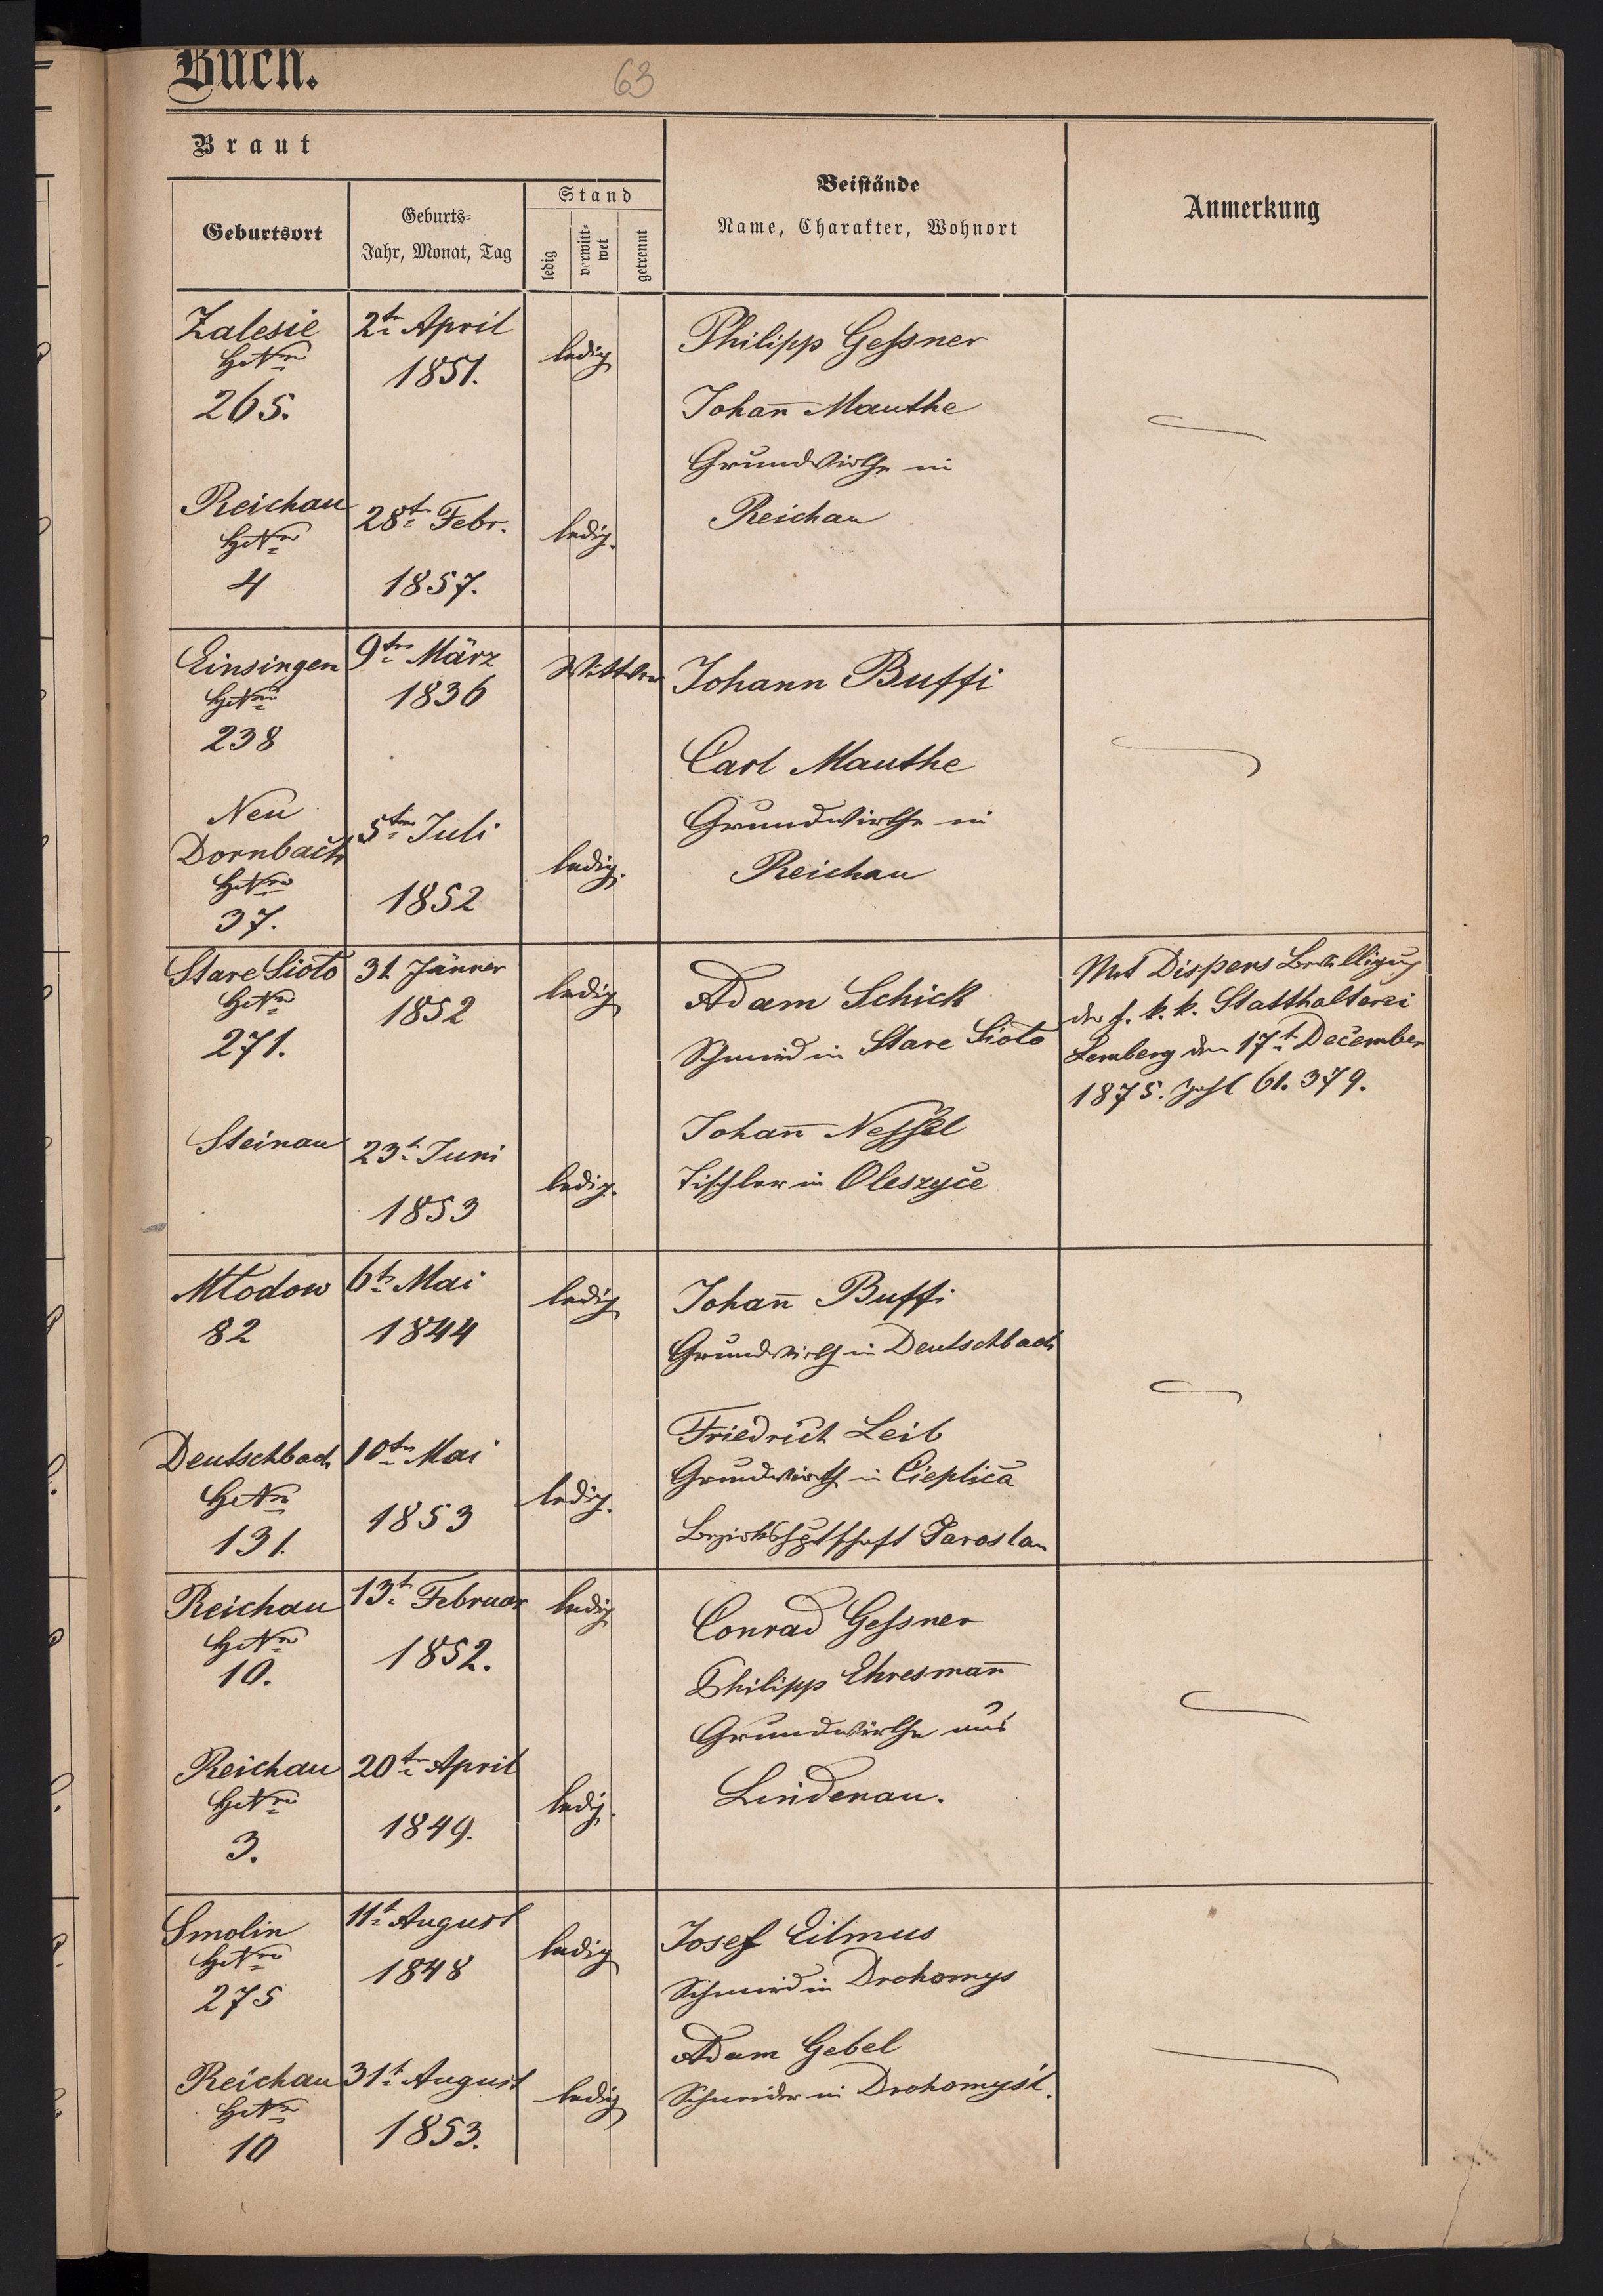 Buch.
63
Braut
Geburtsort
Geburts=
Jahr, Monat, Tag
Stand
ledig
verwitt=
wet
getrennt
Beistände
Name, Charakter, Wohnort
Anmerkung
Zalesie
HNro
265.
2tn April
1851.
ledig
Philipp Gessner
Johan̄ Mauthe
Grundwirthe in
Reichau
Reichau
HNro
4
28t Febr.
1857.
ledig.
Einsingen
HNro
238
9ten März
1836
Wittwe
Johann Buffi
Carl Mauthe
Grundwirthe in
Reichau
Neu
Dornbach
HNro
37.
5ten Juli
1852
ledig.
Stare Sioło
HNro
271.
31 Jänner
1852
ledig
Adam Schick
Schmied in Stare Sioło
Johan̄ Nessel
Tischler in Oleszyce
Mit Dispens Bewilligug
der h. k. k. Statthalterei
Lemberg den 17t December
1875. Zahl 61.379.
Steinau
23t Juni
1853
ledig.
Młodow
82
6tn Mai
1844
ledig
Johan̄ Buffi
Grundwirth in Deutschbach
Friedrich Leib
Grundwirth in Cieplica
Bezirkshptschaft Jaroslau
Deutschbach
HNro
131.
10tn Mai
1853
ledig.
Reichau
HNro
10.
13t Februar
1852.
ledig
Conrad Gessner
Philipp Ehresman̄
Grundwirthe aus
Lindenau.
Reichau
HNro
3.
20tn April
1849.
ledig.
Smolin
HNro
275
11t August
1848
ledig
Josef Eilmus
Schmied in Drohomys
Adam Gebel
Schneider in Drohomyśl.
Reichau
HNro
10
31t August
1853.
ledig